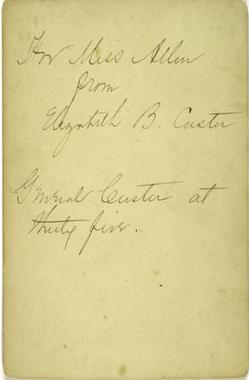 For Miss Allen
from
Elizabeth B. Custer
General Custer at
thirty five.